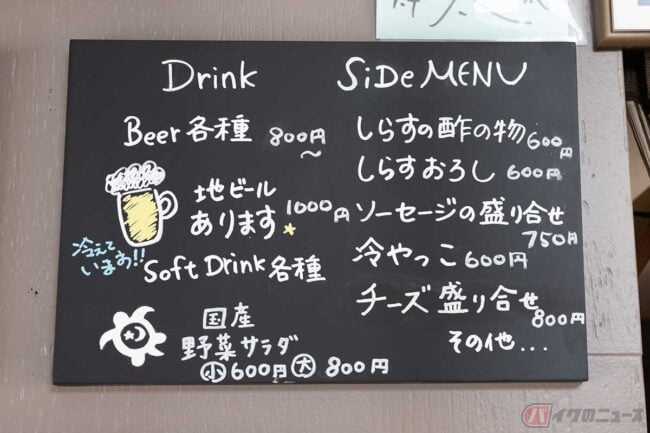 Drink
Beer各種 800円～
地ビール
あります 1000円
冷えて
います!!
Soft Drink 各種
国産
野菜サラダ
小600円 大 800円
SiDe MENU
しらすの酢の物 600円
しらすおろし 600円
ソーセージの盛り合せ
750円
冷やっこ 600円
チーズ盛り合せ
800円
その他...
バイクのニュース